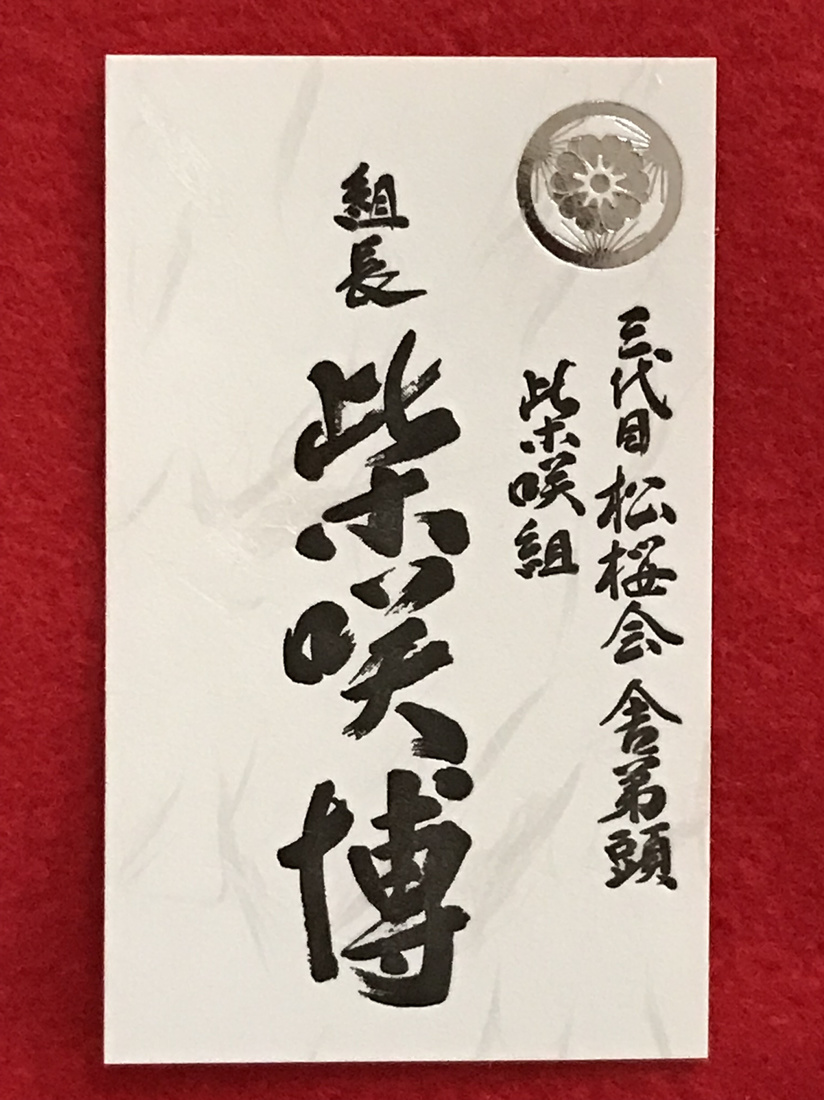 三代目 松桜会 舎弟頭
柴咲組
組長 柴咲 博